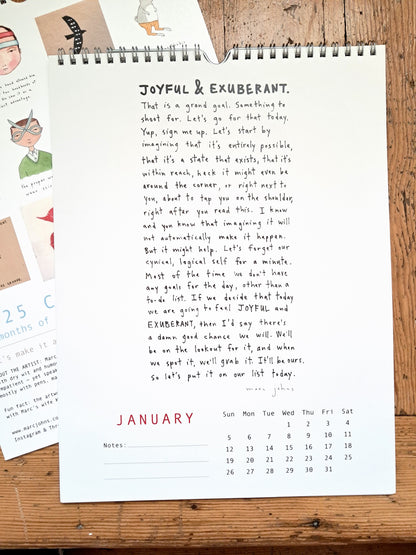 JOYFUL & EXUBERANT.
That is a grand goal. Something to
shoot for. Let's go for that today.
Yup, sign me up. Let's start by
imagining that it's entirely possible,
that it's a state that exists, that it's
within reach, heck it might even be
around the corner, or right next to
you, about to tap you on the shoulder,
right after you read this. I know
and you know that imagining it will
not automatically make it happen.
But it might help. Let's forget our
cynical, logical self for a minute.
Most of the time we don't have
any goals for the day, other than a
to-do list. If we decide that today
we are going to feel JOYFUL and
EXUBERANT, then I'd say there's
a damn good chance we will. We'll
be on the lookout for it, and when
we spot it, we'll grab it. It'll be ours.
So let's put it on our list today.
marc johns
JANUARY
Notes:
Sun Mon Tue Wed Thu Fri Sat
1 2 3 4
5 6 7 8 9 10 11
12 13 14 15 16 17 18
19 20 21 22 23 24 25
26 27 28 29 30 31
25 C
months of
's make it a
OUT THE ARTIST: Marc
with dry wit and humor
mpatient - pet
mostly with pens.
Fun fact: the
with Marc's wife
www.marcjohns.com
Instagram & Thr